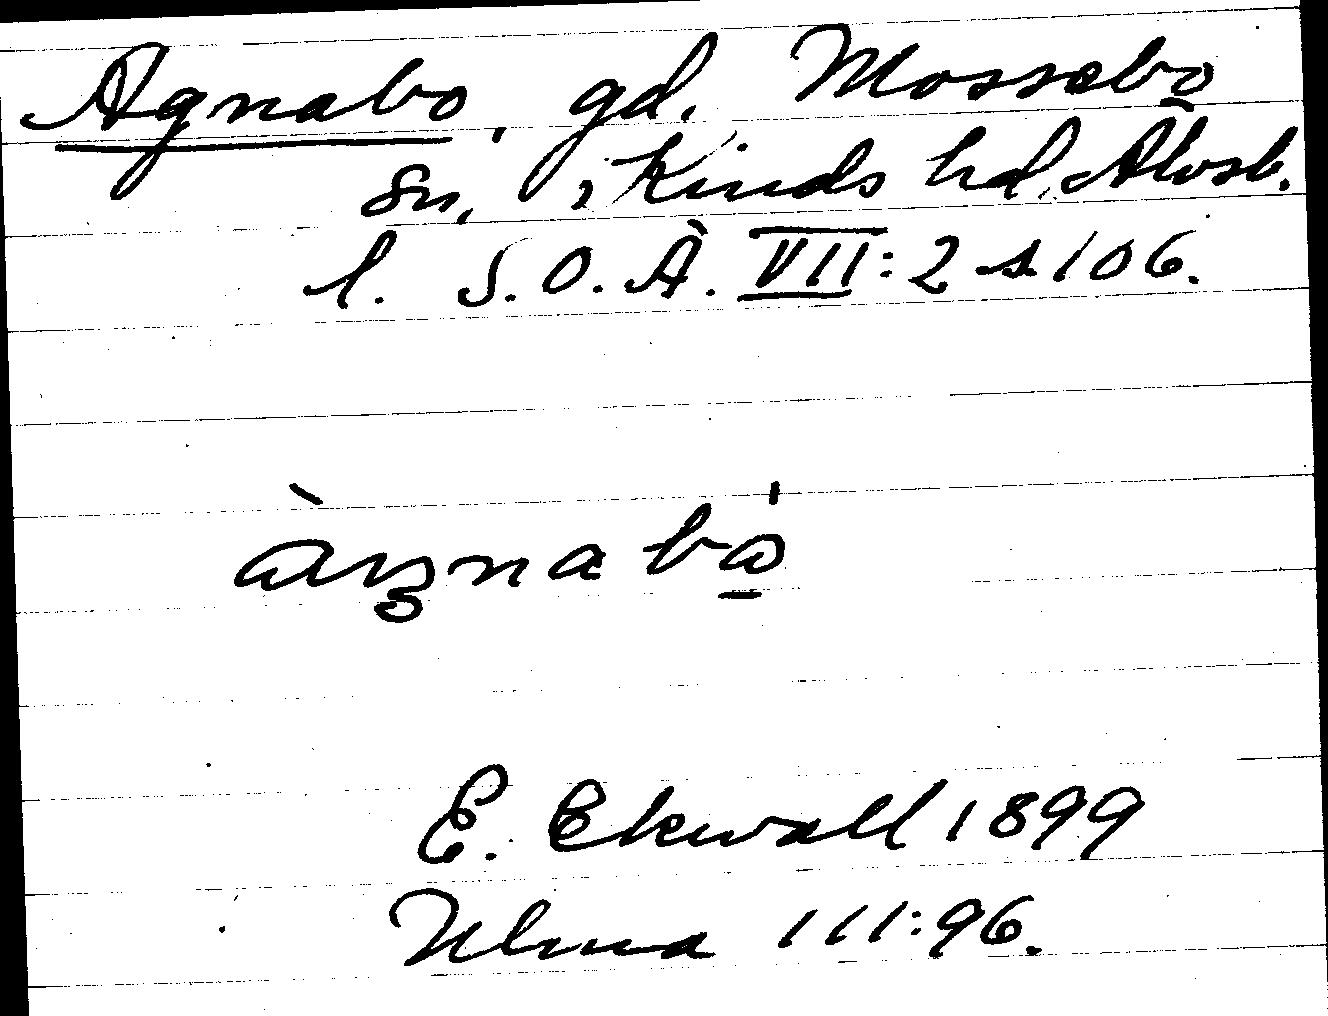 Agnabo, gd. Mossebo
sn, i Kinds hd, Älvsb.
l. S.O.Ä. VII:2 s 106.
E. Ekwall 1899
Ulma 111:96.